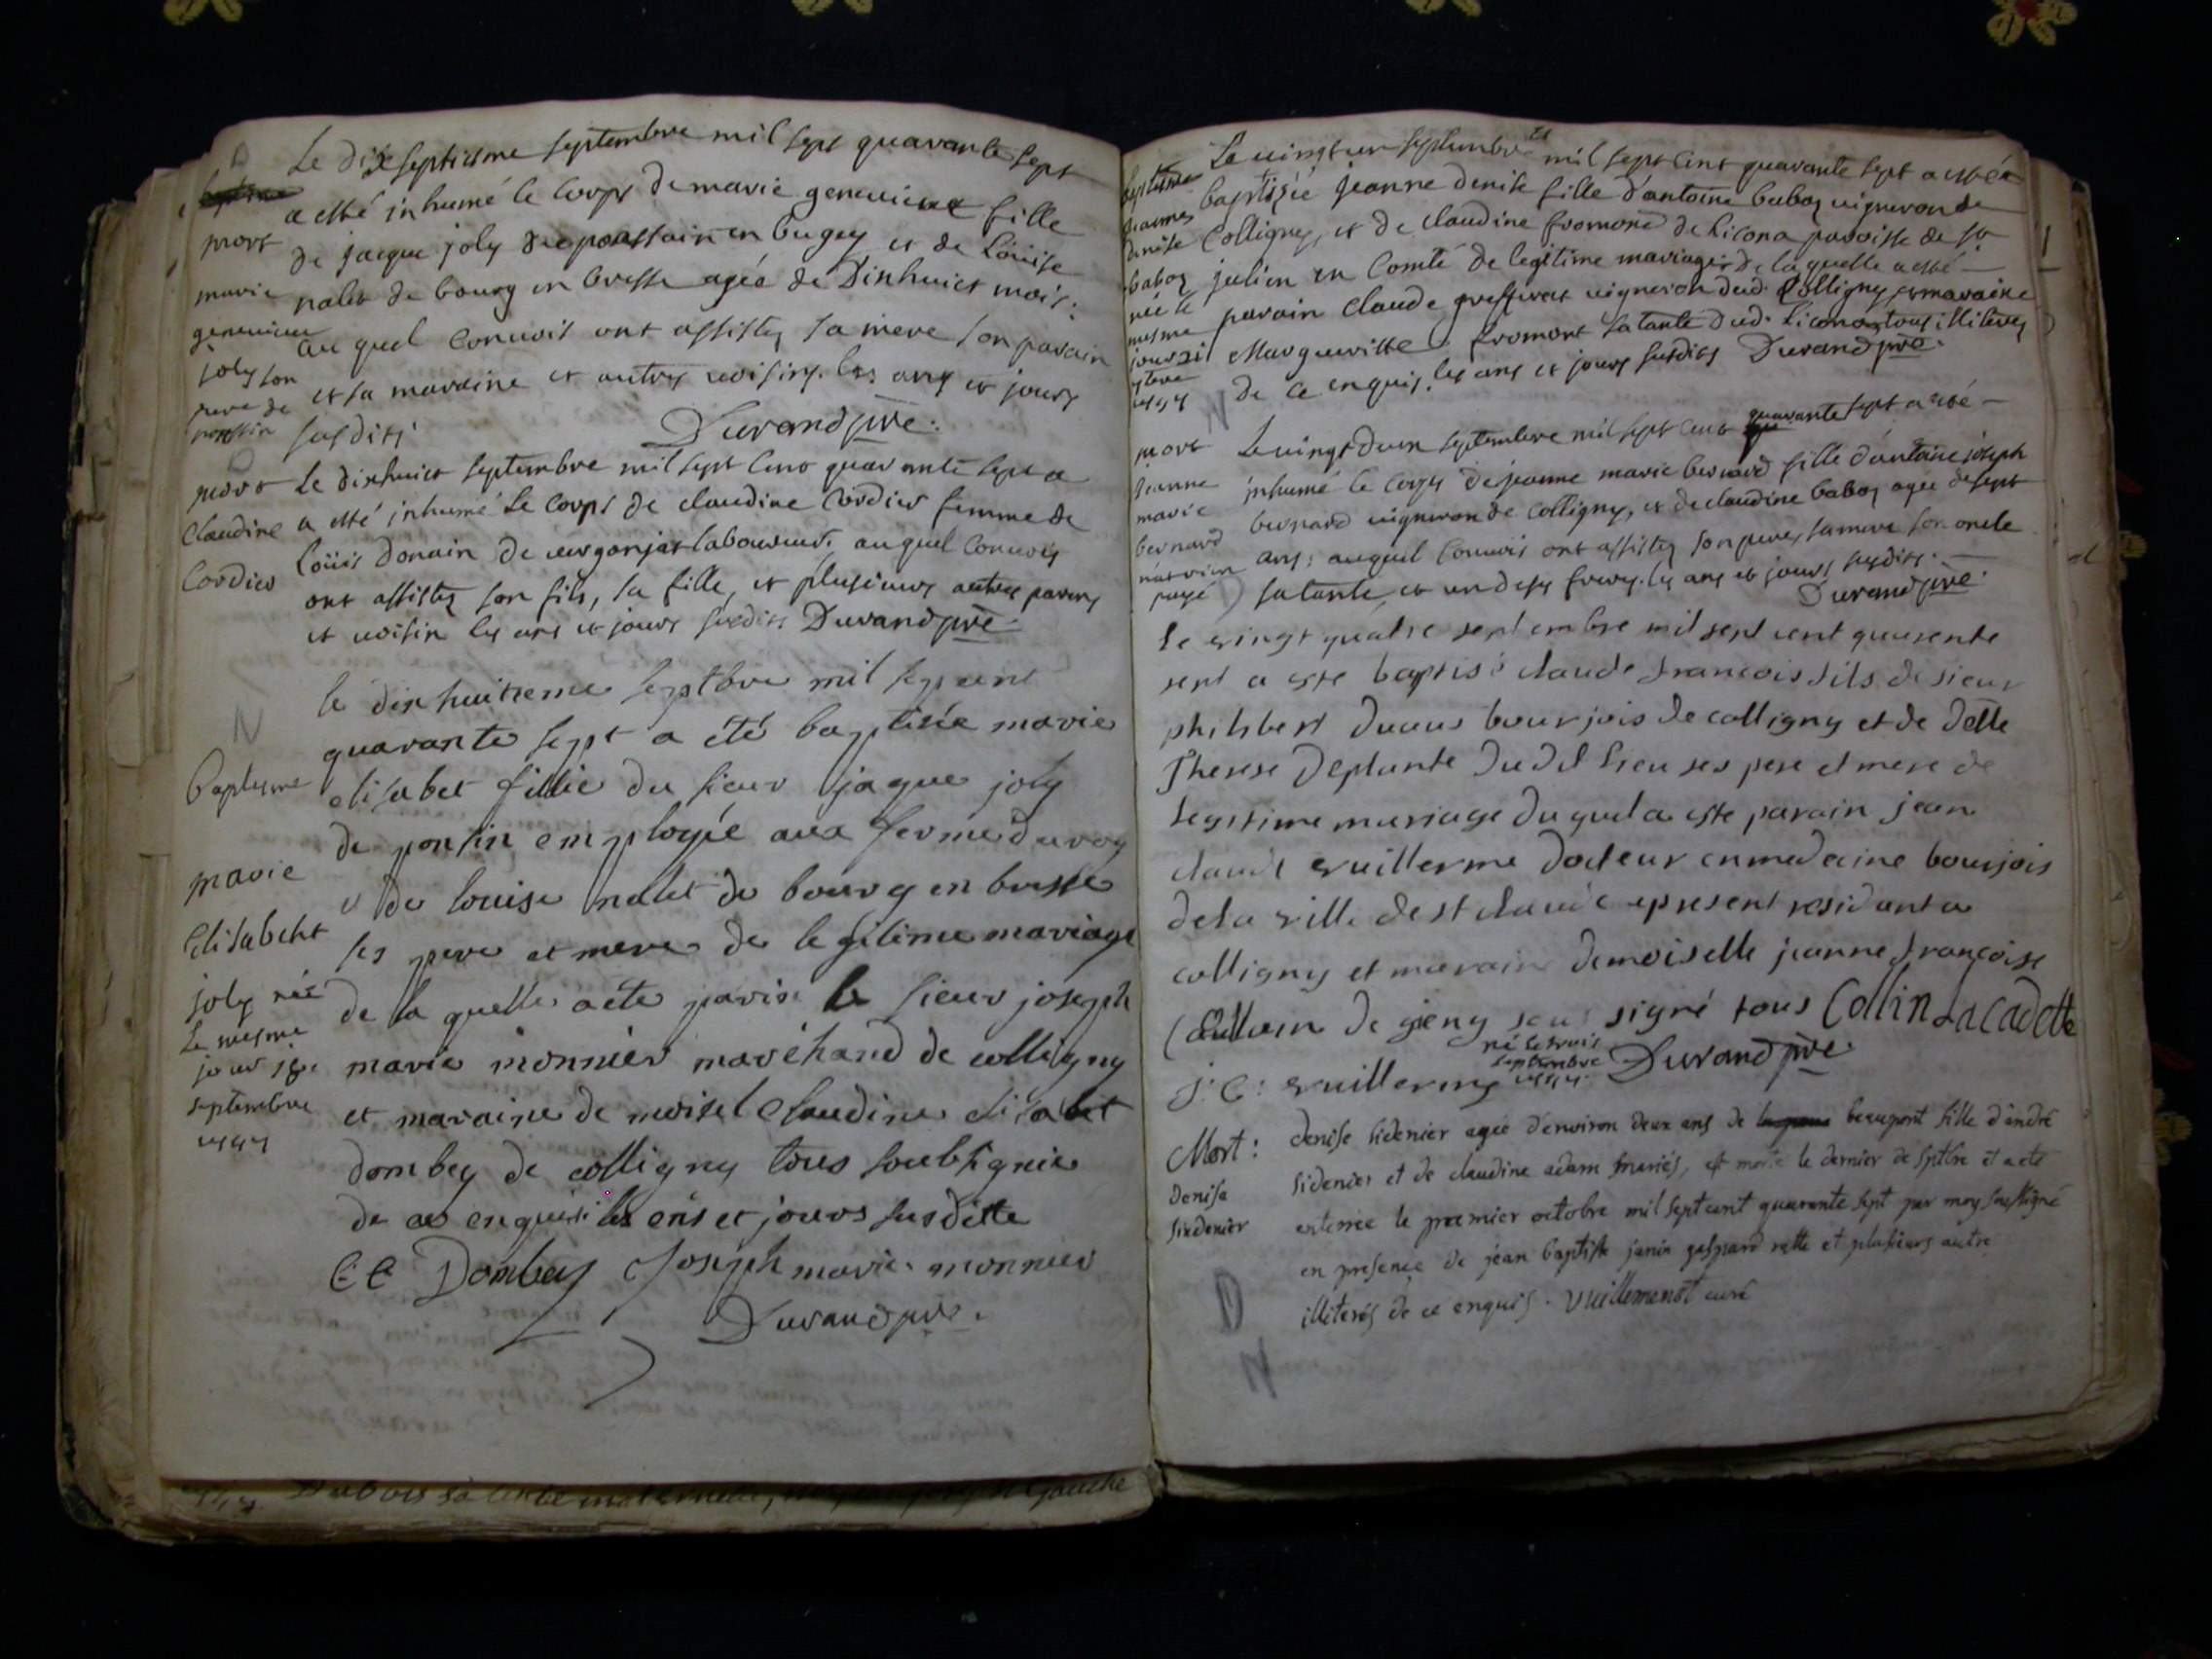 Le dixseptiesme septembre mil sept quarante sept
a esté inhumé le corps de marie genevieve fille
de jacque joly de en bugey et de Loüise
nalet de bourg en bresse agéé de Dixhuict mois:
au quel convoit ont assistez sa mere son parain
et sa maraine et autres voisins. les ans et jours
susdits
Durand pre.
mort
marie
genevieve
joly son
pere de
Le dixhuict septembre mil sept cent quarante sept a
a esté inhumé Le corps de claudine Cordier femme de
loüis donain de laboureur. auquel convois
ont assistez son fils, sa fille, et plusieurs autres parens
et voisin les ans et jours susdits Durand pre.
mort
Claudine
Cordier
le dixhuitieme septbre mil sept cent
quarante sept a été baptisée marie
elisabet fillie du sieur jaque joly
de ponsin employée aux ferme du roy
et de louise nalet de bourg en bresse
ses pere et mere de legitime mariage
de la quelle a éte parin le sieur joseph
marie monnier marchand de colligny
et maraine de moisel Claudine elisabet
dombey de colligny tous soubsignie
de ce enquis les ens et jours susditte
C E Dombey Joseph marie monnier
Durand pre.
Baptesme
marie
Elisabeht
joly née
Le mesme
jour 18e
septembre
1747
Le vingt un septembre mil sept cent quarante sept a esté
baptizéé Jeanne denise fille d'antoine baboz vigneron de
Colligny, et de claudine fromond de Licona paroisse de st
julien en Comté de legitime mariage: de laquelle a esté
parain claude vigneron dud. Colligny et maraine
Margueritte fromont sa tante dud. Licona tous illiterez
de ce enquis. les ans et jours susdits Durand pre.
baptesme
jeanne
denise
baboz
née le
mesme
jour 21
1747
Le vingt deux septembre mil sept cent quarante sept a esté
inhumé le corps de jeanne marie bernard fille d'antoine joseph
bernard vigneron de Colligny, et de claudine baboz agée de sept
ans: auquel convois ont assistez son pere, sa mere son oncle
sa tante, et un de ses freres. les ans et jours susdits.
Durand pre.
mort
Jeanne
marie
bernard
n'at rien
payé
le vingt quatre septembre mil sept cent quarente
sept a este baptisé claude francois fils de sieur
philibert bourjois de colligny et de delle
Therese Deplante dudit lieu ses pere et mere de
legitime mariage du quel a este parain jean
claude vuillerme docteur en medecine bourjois
de la ville de st claude a present residant a
colligny et maraine demoiselle jeanne françoise
de gieny signé tous Collin La cadette
né le trois
septembre
1747
J: C: vuillerme Durand pre.
denise sidenier agée d'environ deux ans de beaupont fille d'andré
sidenier et de claudine adam mariés, est morte le dernier de septbre et a eté
enterrée le premier octobre mil sept cent quarante sept par moy soussigné
en presence de jéan baptiste janin gaspard rette et plusieurs autre
illiterés de ce enquis. vuillemenot curé
Mort:
Denise
Sindenier